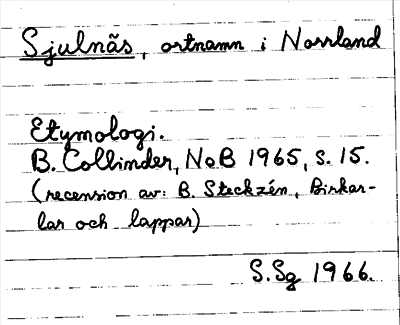 Sjulnäs, ortnamn i Norrland
Etymologi.
B. Collinder, NoB 1965, s. 15.
(recension av: B. Steckzén, Birkar-
lar och lappar)
S.Sg 1966.